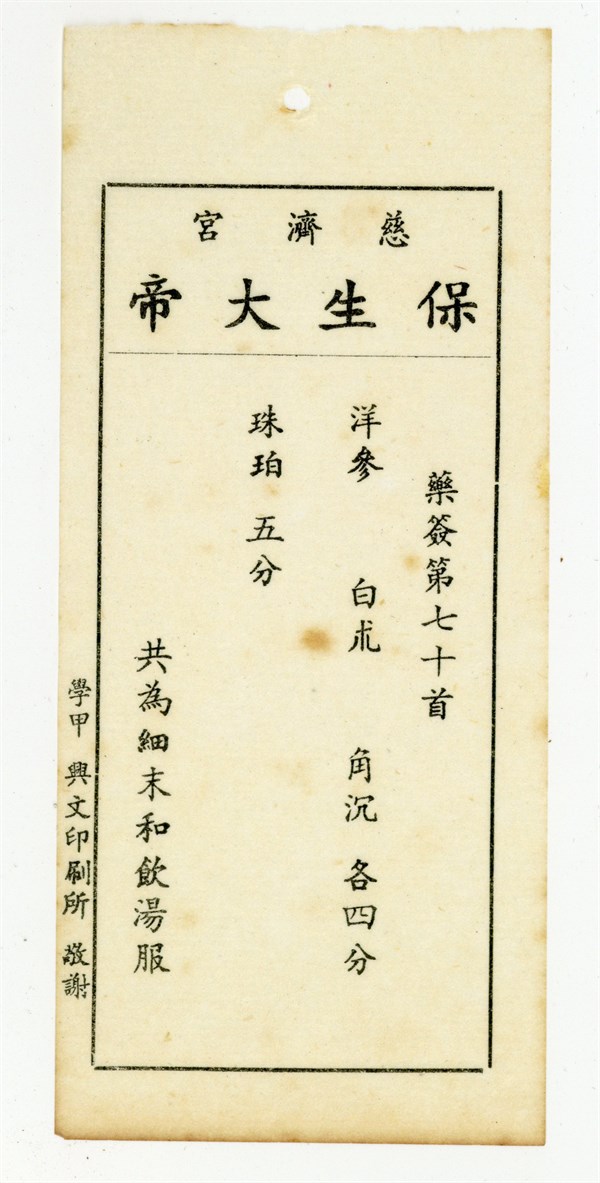 慈濟宮
保生大帝
藥簽第七十首
洋參 白朮 角沉 各四分
珠珀 五分
共為細末和飲湯服
學甲 興文印刷所 敬謝